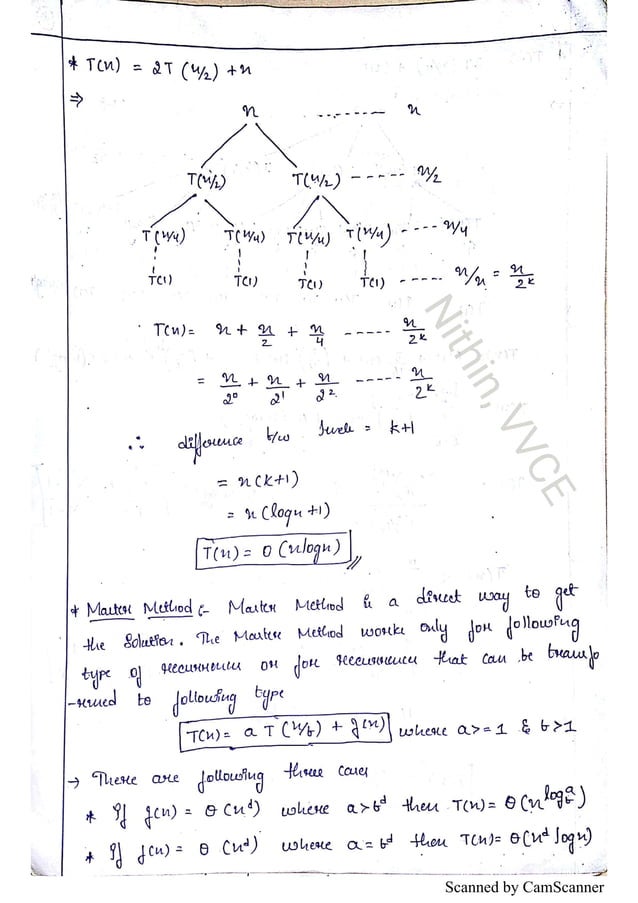 * T(n) = 2T (n/2) + n
⇒
n ------- n
T(n/2) T(n/2) ----- n/2
T(n/4) T(n/4) T(n/4) T(n/4) ---- n/4
T(1) T(1) T(1) T(1) ----- n/n = n/2^k
T(n) = n + n/2 + n/4 ----- n/2^k
= n/2^0 + n/2^1 + n/2^2 ----- n/2^k
∴ difference b/w = k+1
= n(k+1)
= n(logn+1)
T(n) = O(nlogn)
* Master Method :- Master Method is a direct way to get
the Solution. The Master Method works only for following
type of recurrences or for recurrences that can be transfo
-rmed to following type
T(n) = a T (n/b) + f(n) where a>=1 & b>1
→ There are following three cases
* If f(n) = Θ(n^d) where a>b^d then T(n) = Θ(n^log_b^a)
* If f(n) = Θ(n^d) where a=b^d then T(n) = Θ(n^d logn)
Nithin, VVCE
Scanned by CamScanner